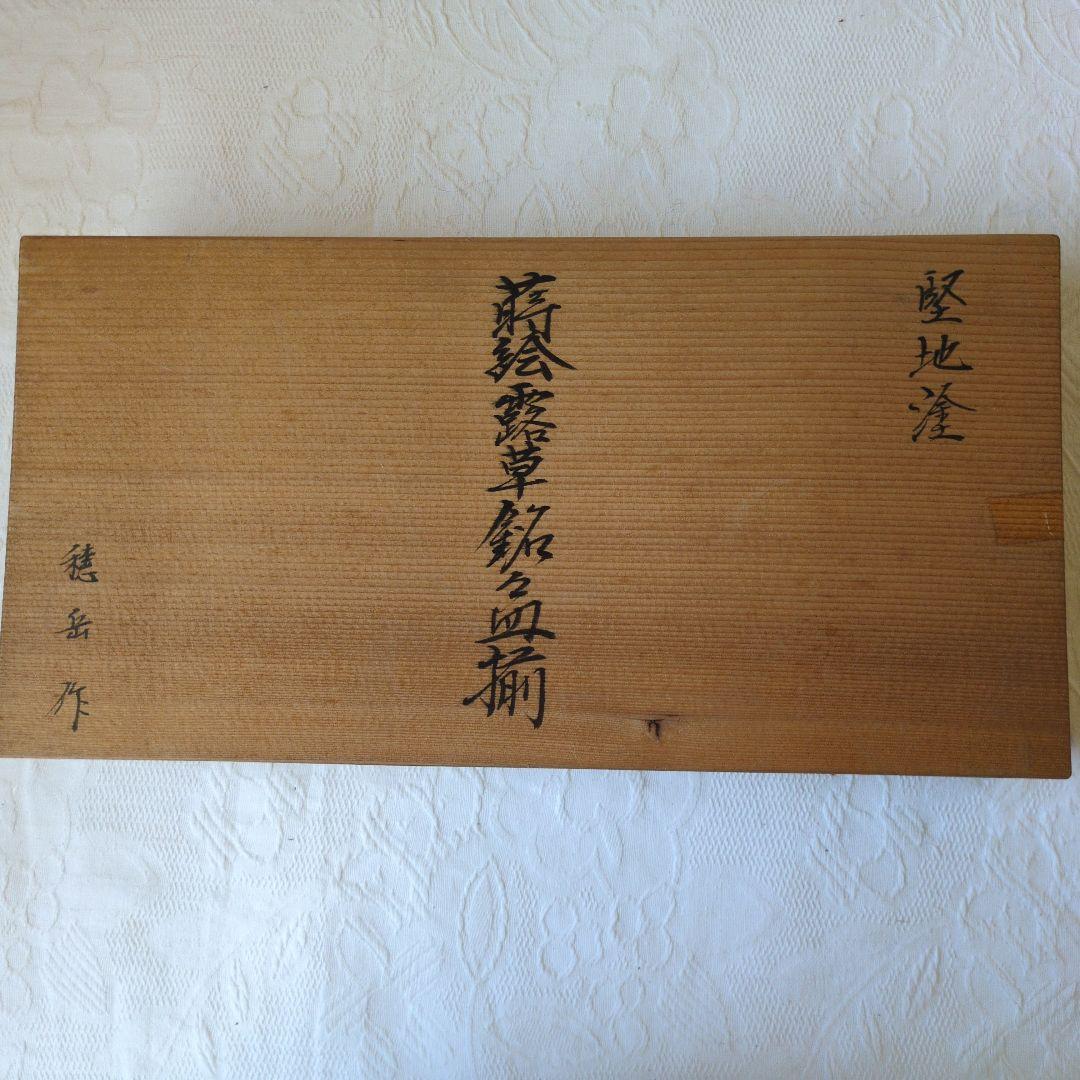 堅地塗
蒔絵露草銘々皿揃
穂岳作